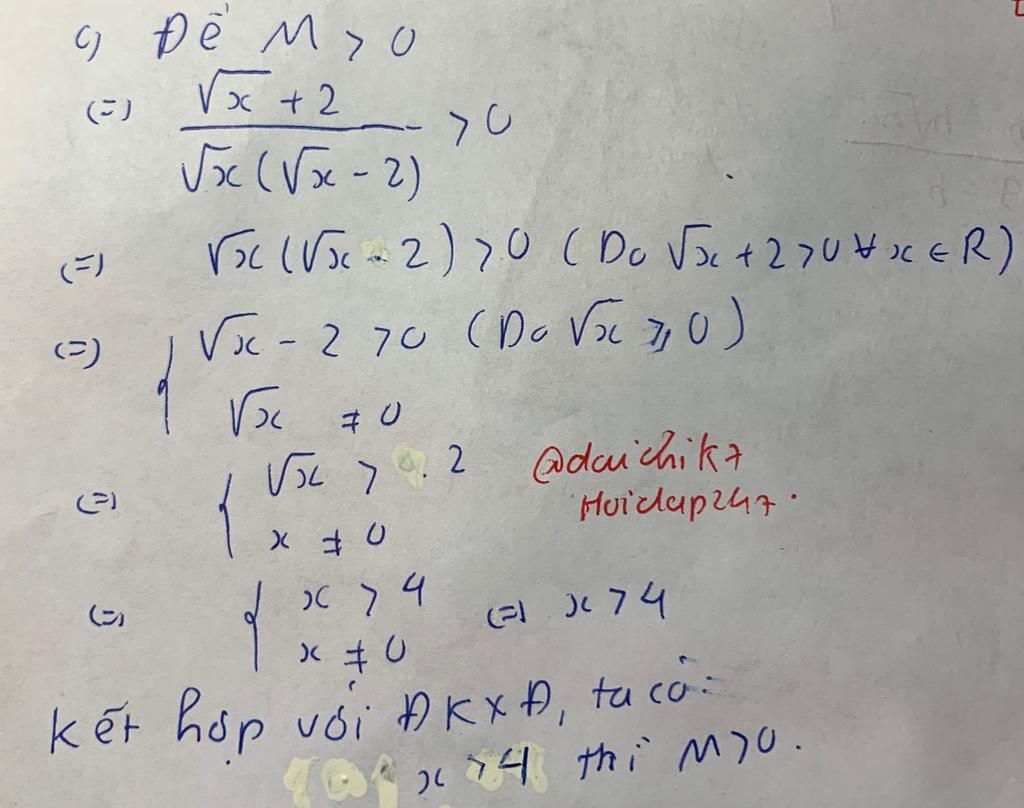 c) Để M > 0
(=) √x + 2 / √x(√x - 2) > 0
(=) √x(√x - 2) > 0 (Do √x + 2 > 0 ∀ x ∈ R)
(=) { √x - 2 > 0 (Do √x ⩾ 0)
√x ≠ 0
(=) { √x > 2
x ≠ 0
@daichik7
Hoidap247.
(=) { x > 4
x ≠ 0
(=) x > 4
Kết hợp với ĐKXĐ, ta có:
x > 4 thì M > 0.